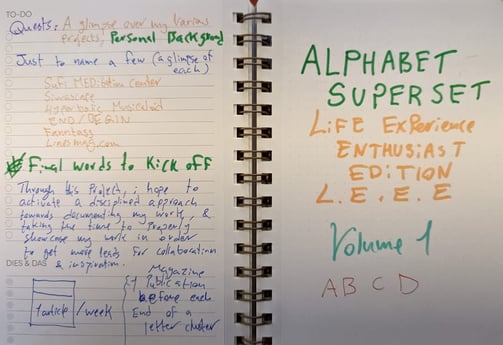 TO-DO
Quests: A glimpse over my various
projects, Personal Background
Just to name a few (a glimpse of
each)
Sufi MEDitation Center
Simascape
Hyperbolic Musicaloid
END/BEGIN
Fanntasy
Linesmag.com
Final words to Kick off
Through this Project, i hope to
activate a disciplined approach
towards documenting my work, &
taking the time to properly
showcase my work in order
to get more leads for collaboration
DIES & DAS & inspiration.
1 article / week
Magazine
Publication
before each
End of a
letter cluster
ALPHABET
SUPERSET
LiFE ExPerience
ENTHUSiAST
EDiTiON
L.E.E.E
Volume 1
A B C D